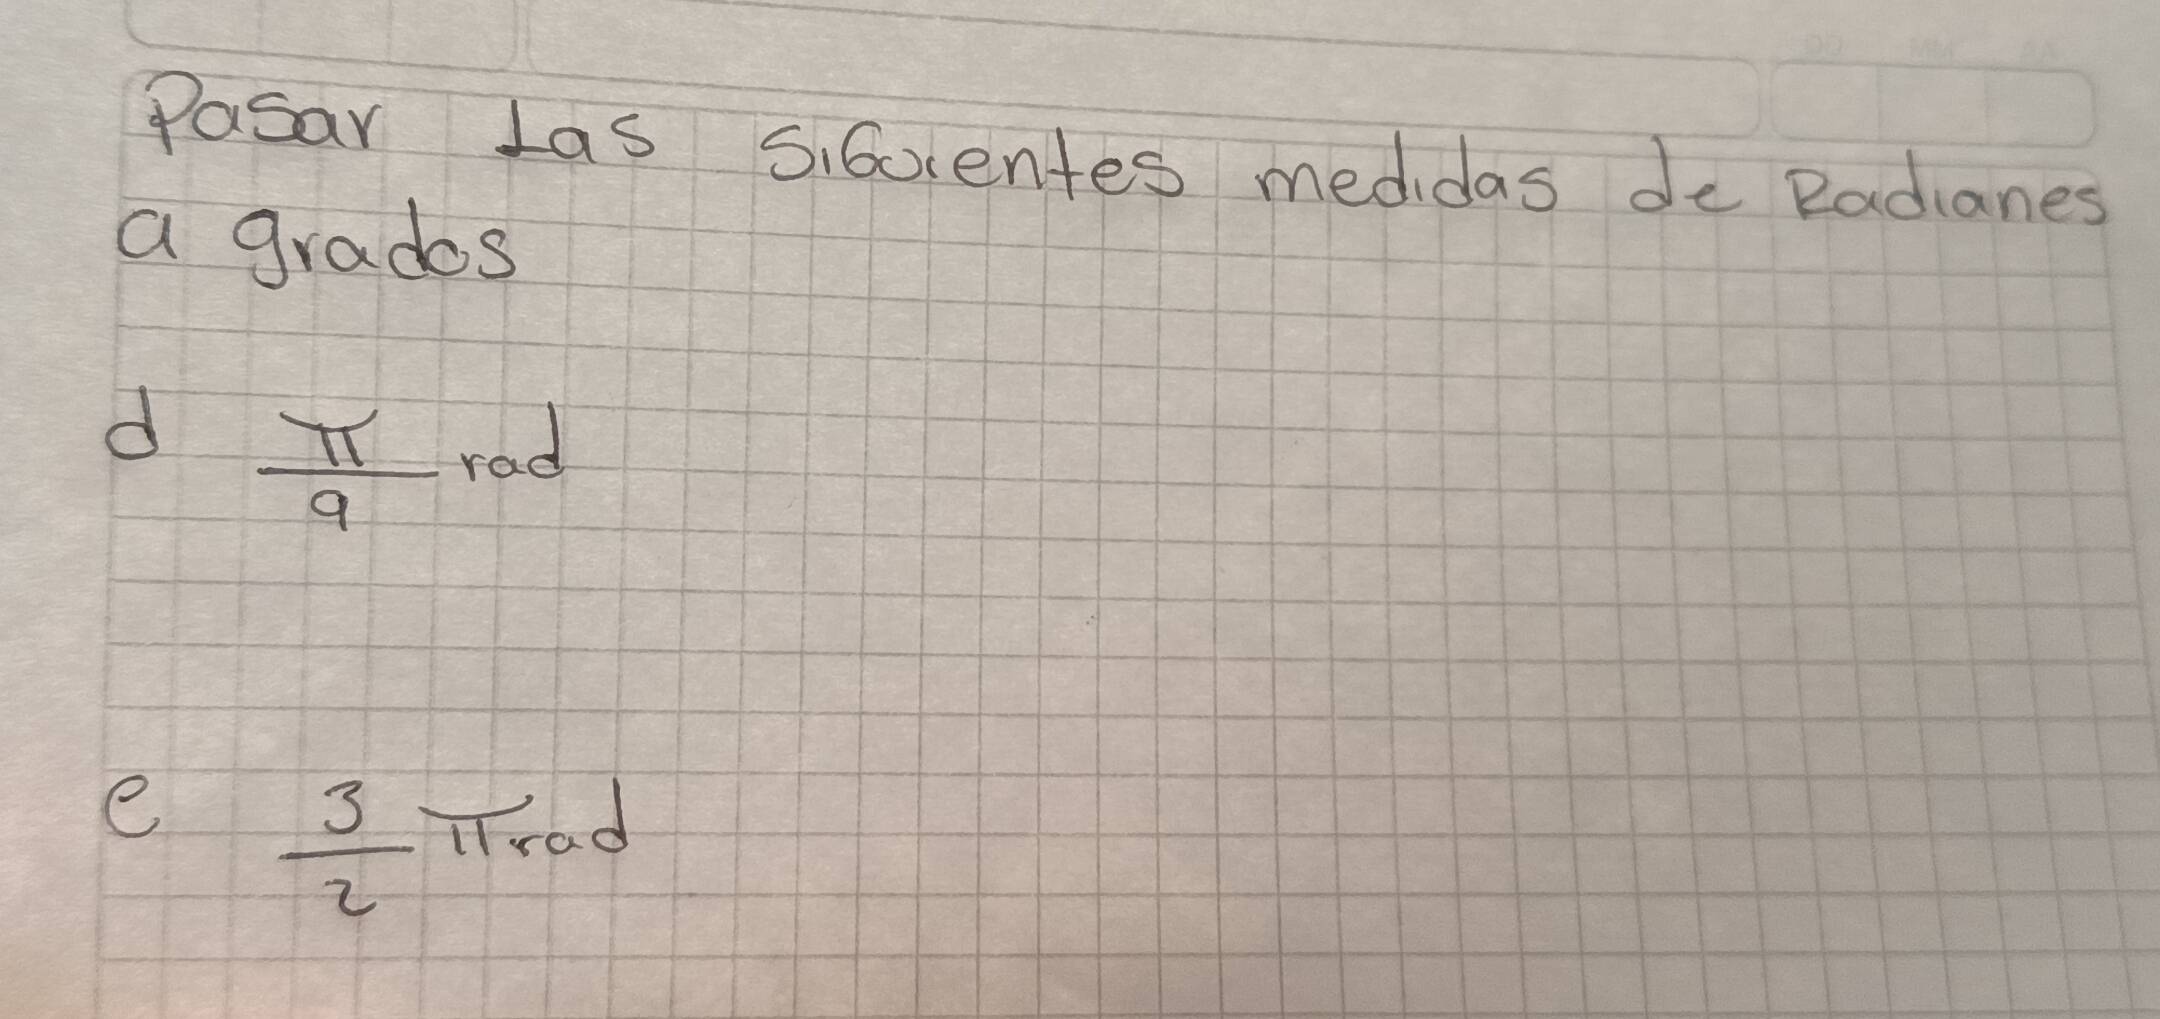 Pasar Las Siguientes medidas de Radianes
a grados
d π/9 rad
e 3/2 π rad